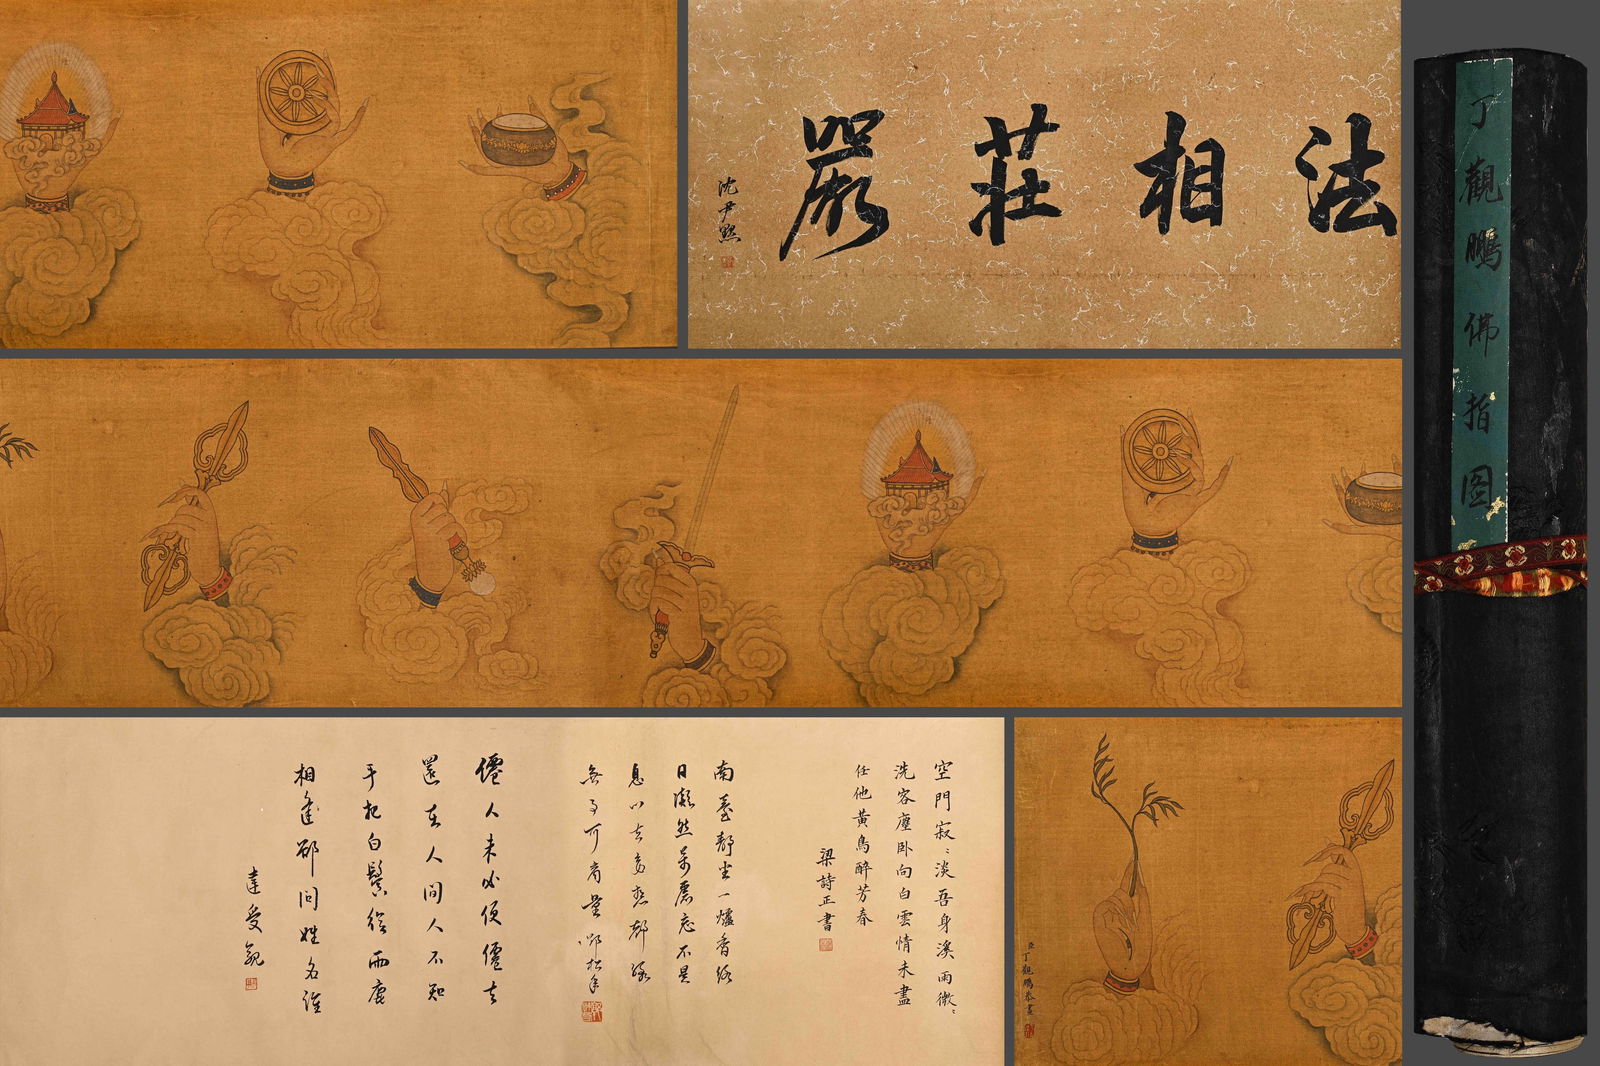 法相莊嚴
沈尹默
丁觀鵬佛指图
空門寂〻淡吾身溪雨微〻
洗客塵卧向白雲情未盡
任他黃鳥醉芳春
梁詩正書
南臺靜坐一爐香終
日凝然萬慮忘不是
息心去妄想都緣
無事可商量
鄧松年
僊人未必便僊去
還在人間人不知
手把白鬚從兩鹿
相逢郤問姓名誰
達受觀
臣丁觀鵬恭畫